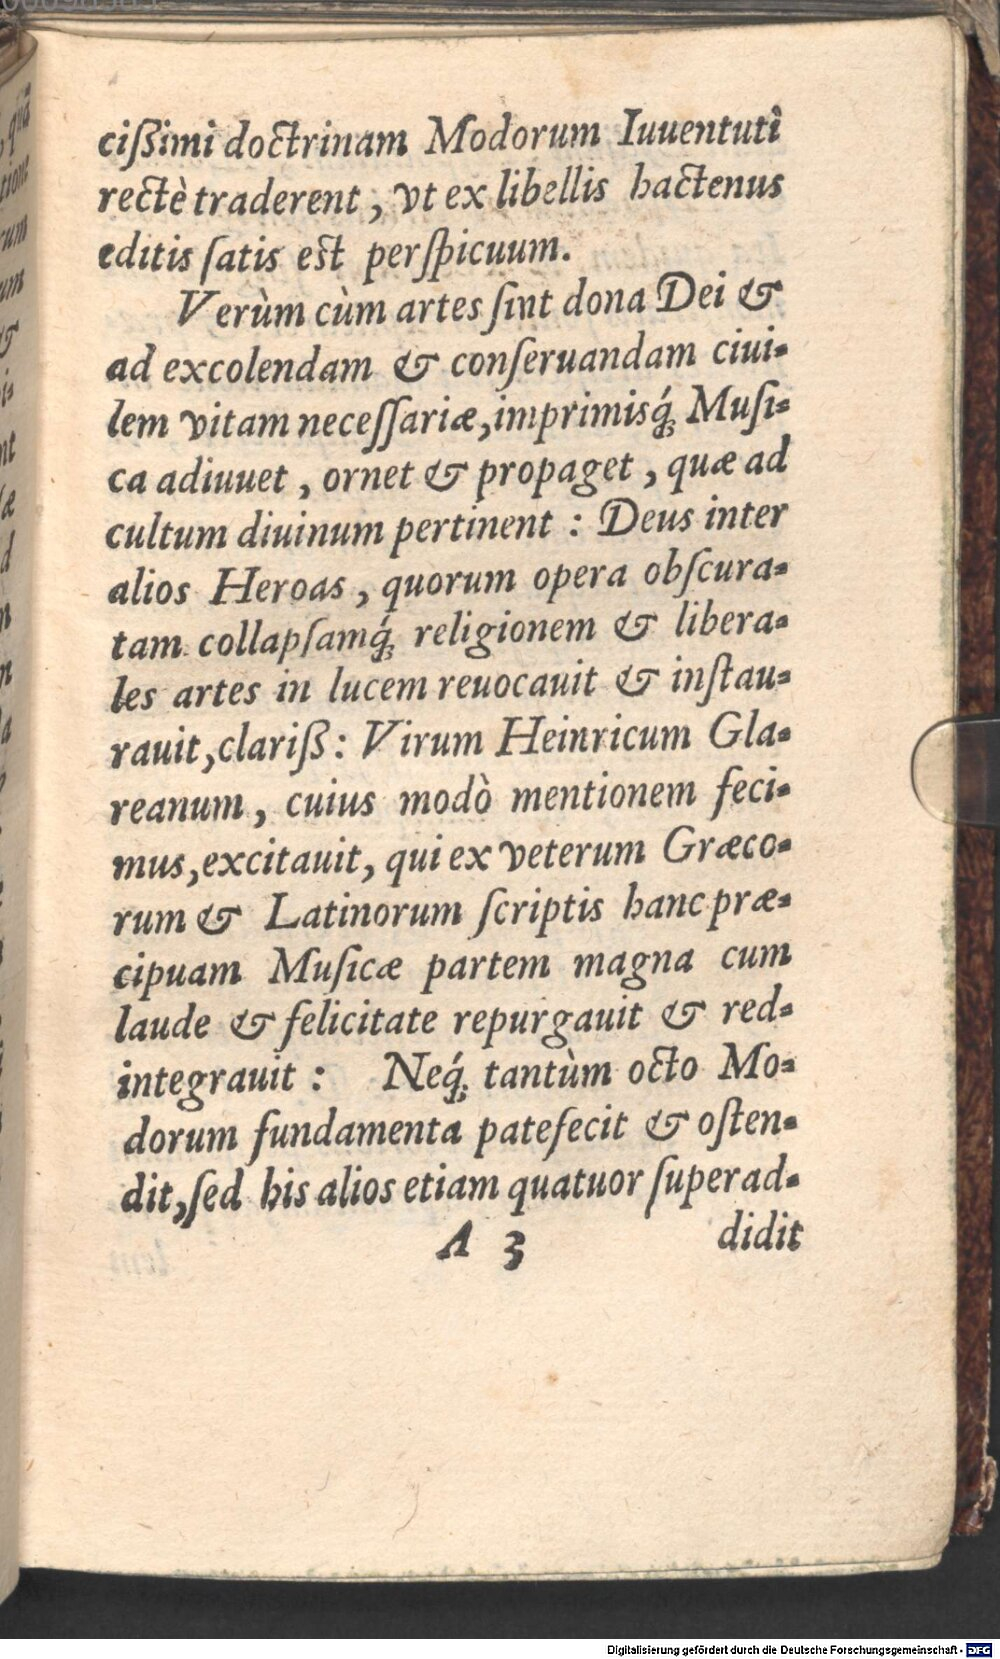 ciſſimi doctrinam Modorum Iuuentuti
rectè traderent, vt ex libellis hactenus
editis ſatis est perſpicuum.
Verùm cùm artes ſint dona Dei &
ad excolendam & conſeruandam ciui-
lem vitam neceſſariæ, imprimisq́; Muſi-
ca adiuuet, ornet & propaget, quæ ad
cultum diuinum pertinent: Deus inter
alios Heroas, quorum opera obſcura-
tam collapſamq́; religionem & libera-
les artes in lucem reuocauit & inſtau-
rauit, clariß: Virum Heinricum Gla-
reanum, cuius modò mentionem feci-
mus, excitauit, qui ex veterum Græco-
rum & Latinorum ſcriptis hanc præ-
cipuam Muſicæ partem magna cum
laude & felicitate repurgauit & red-
integrauit: Neq́; tantùm octo Mo-
dorum fundamenta patefecit & oſten-
dit, ſed his alios etiam quatuor ſuperad-
A 3 didit
Digitalisierung gefördert durch die Deutsche Forschungsgemeinschaft - DFG